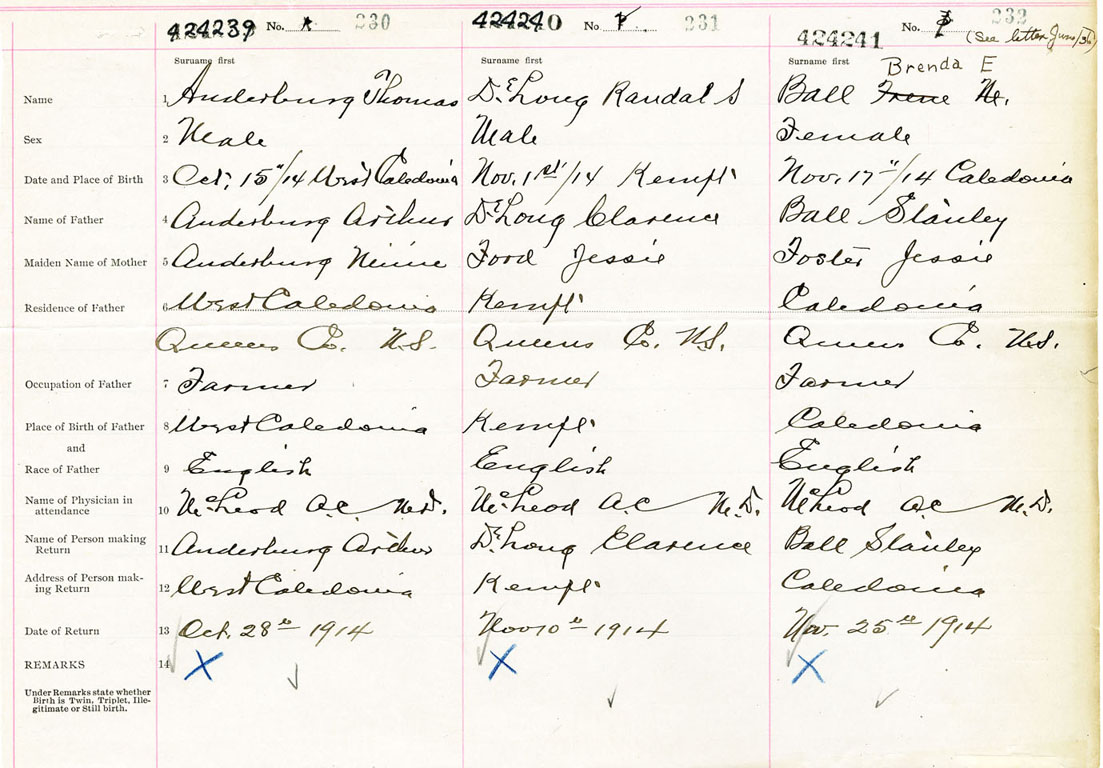 424239 No. 230 424240 No. 231 424241 No. 232
(See letter June/36)
Surname first Surname first Surname first Brenda E
Name 1 Anderburg Thomas DeLong Randal S Ball Irene M.
Sex 2 Male Male Female
Date and Place of Birth 3 Oct. 15"/14 West Caledonia Nov. 1st/14 Kempt Nov. 17"/14 Caledonia
Name of Father 4 Anderburg Arthur DeLong Clarence Ball Stanley
Maiden Name of Mother 5 Anderburg Ford Jessie Foster Jessie
Residence of Father 6 West Caledonia Kempt Caledonia
Queens Co. N.S. Queens Co. N.S. Queens Co. N.S.
Occupation of Father 7 Farmer Farmer Farmer
Place of Birth of Father 8 West Caledonia Kempt Caledonia
and
Race of Father 9 English English English
Name of Physician in
attendance 10 McLeod A.C. M.D. McLeod A.C. M.D. McLeod A.C. M.D.
Name of Person making
Return 11 Anderburg Arthur DeLong Clarence Ball Stanley
Address of Person mak-
ing Return 12 West Caledonia Kempt Caledonia
Date of Return 13 Oct. 28th 1914 Nov 10th 1914 Nov. 25th 1914
REMARKS 14 X X X
Under Remarks state whether
Birth is Twin, Triplet, Ille-
gitimate or Still birth.